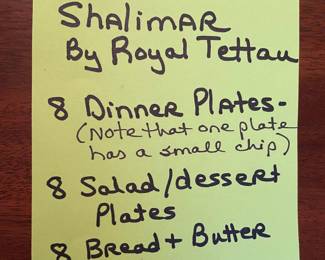 Shalimar
By Royal Tettau
8 Dinner Plates-
(Note that one plate
has a small chip)
8 Salad/dessert
Plates
8 Bread + Butter